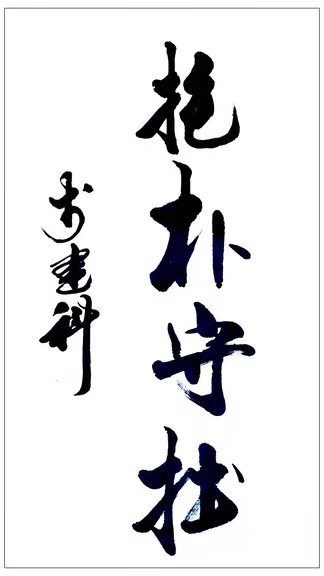 抱朴守拙
建科